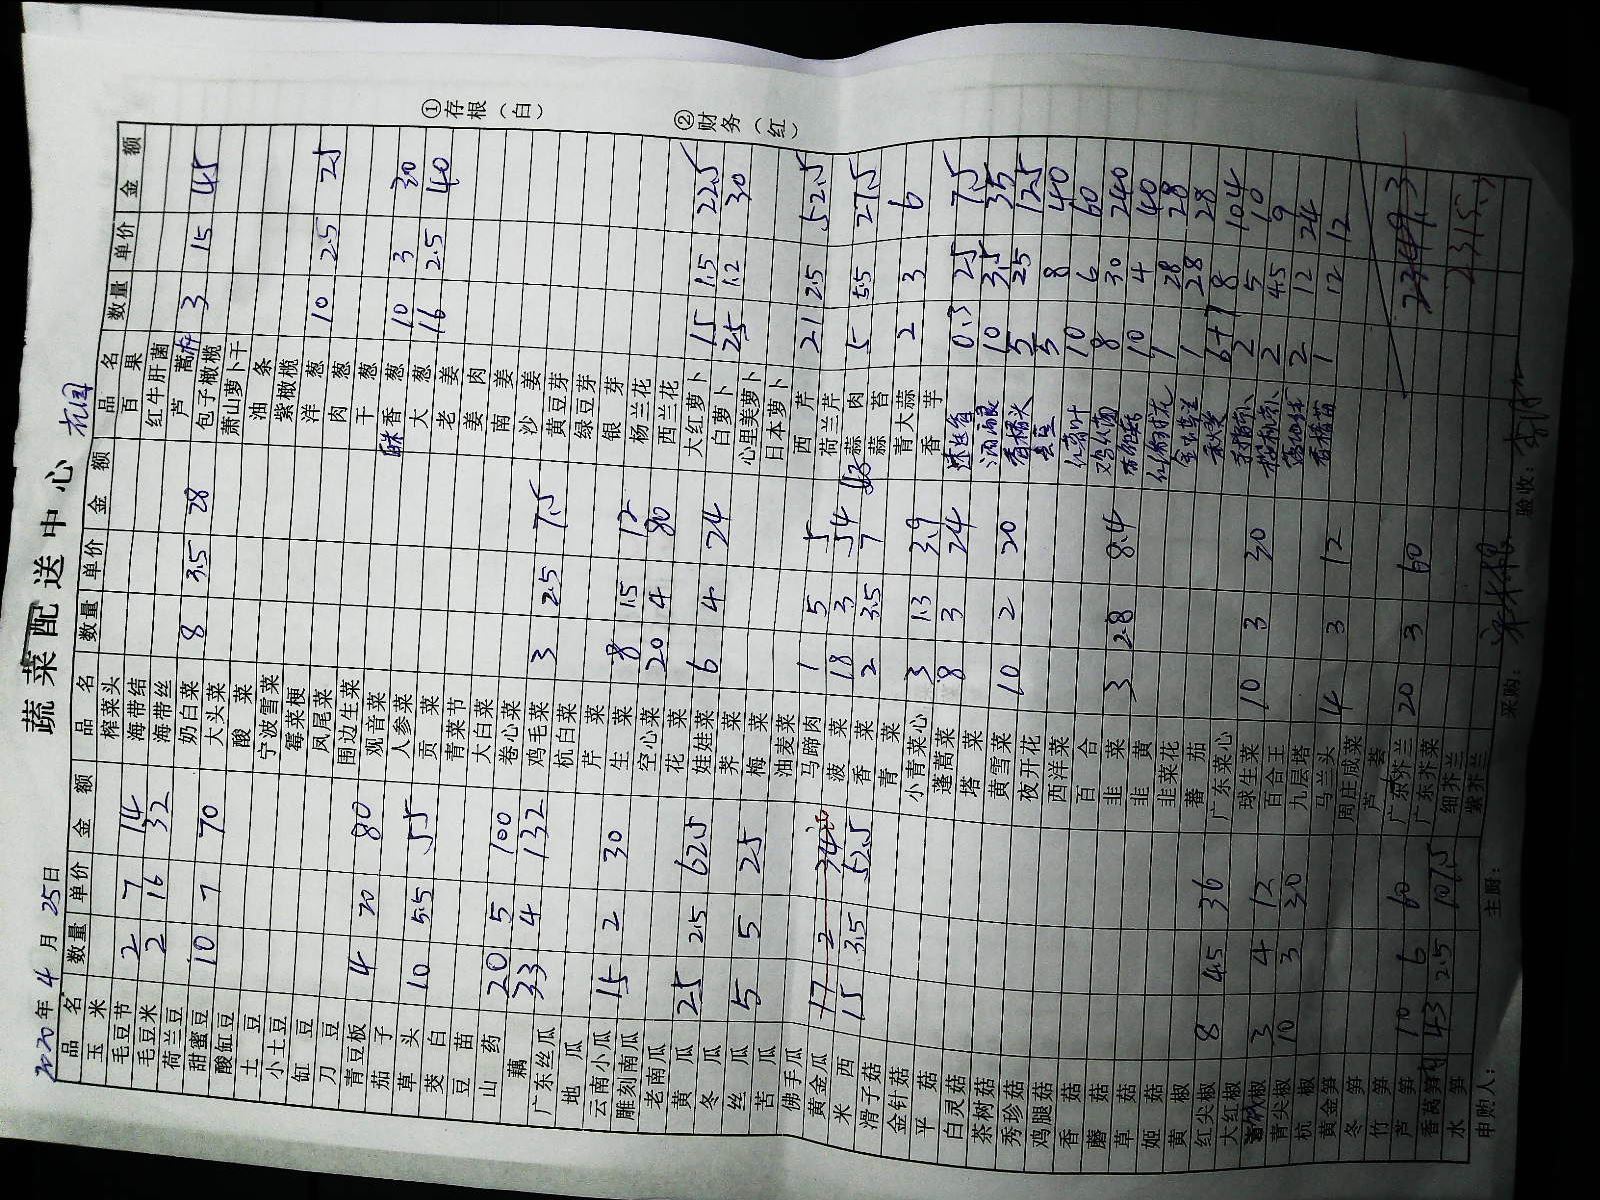 蔬菜配送中心
2020年4月25日 花园
品名 数量 单价 金额 品名 数量 单价 金额 品名 数量 单价 金额
玉米 榨菜头 百果
毛豆节 2 7 14 海带结 红牛肝菌
毛豆米 2 16 32 海带丝 芦蒿 3 15 45
荷兰豆 奶白菜 8 3.5 28 包子橄榄
甜蜜豆 10 7 70 大头菜 萧山萝卜干
酸缸豆 酸菜 油条
土豆 宁波雪菜 紫橄榄
小土豆 霉菜梗 洋葱 10 2.5 25
缸豆 凤尾菜 肉葱
刀豆 围边生菜 干葱
青豆板 4 20 80 观音菜 香葱 10 3 30
茄子 人参菜 大葱 16 2.5 40
草头 10 5.5 55 贡菜 老姜
茭白 青菜节 姜肉
豆苗 大白菜 南姜
山药 20 5 100 卷心菜 沙姜
藕 33 4 132 鸡毛菜 3 2.5 7.5 黄豆芽
广东丝瓜 杭白菜 绿豆芽
地瓜 芹菜 银芽
云南小瓜 15 2 30 生菜 8 1.5 12 杨兰花
雕刻南瓜 空心菜 20 4 80 西兰花
老南瓜 花菜 大红萝卜 15 1.5 22.5
黄瓜 25 2.5 62.5 娃娃菜 6 4 24 白萝卜 25 1.2 30
冬瓜 荠菜 心里美萝卜
丝瓜 5 5 25 梅菜 日本萝卜
苦瓜 油麦菜 西芹 21 2.5 52.5
佛手瓜 马蹄肉 1 5 5 荷兰芹
黄金瓜 17 2 34 菠菜 18 3 54 蒜肉 5 5.5 27.5
米西 15 3.5 52.5 香菜 2 3.5 7 蒜苔
滑子菇 青菜 青大蒜 2 3 6
金针菇 小青菜心 3 1.3 3.9 香芋
平菇 蓬蒿菜 8 3 24 迷迭香 0.3 25 7.5
白灵菇 塔菜 10 3.5 35
茶树菇 黄雪菜 10 2 20 香椿头 5 25 125
秀珍菇 夜开花 5 8 40
鸡腿菇 西洋菜 10 6 60
香菇 百合 8 30 240
蘑菇 韭菜 3 2.8 8.4 10 4 40
草菇 韭黄 1 28 28
姬菇 韭菜花 1 28 28
黄椒 蕃茄 6+7 8 104
红尖椒 8 4.5 36 广东菜心 2 5 10
大红椒 球生菜 10 3 30 2 4.5 9
椒 3 4 12 百合王 2 12 24
青尖椒 10 3 30 九层塔 香椿苗 1 12 12
杭椒 马兰头 4 3 12
黄金笋 周庄咸菜
冬笋 芦荟
竹笋 广东芥兰 20 3 60
芦笋 10 6 60 广东芥菜
香莴笋 43 2.5 107.5 细芥兰
水笋 紫芥兰
申购人： 主厨： 采购： 验收：
①存根（白）
②财务（红）